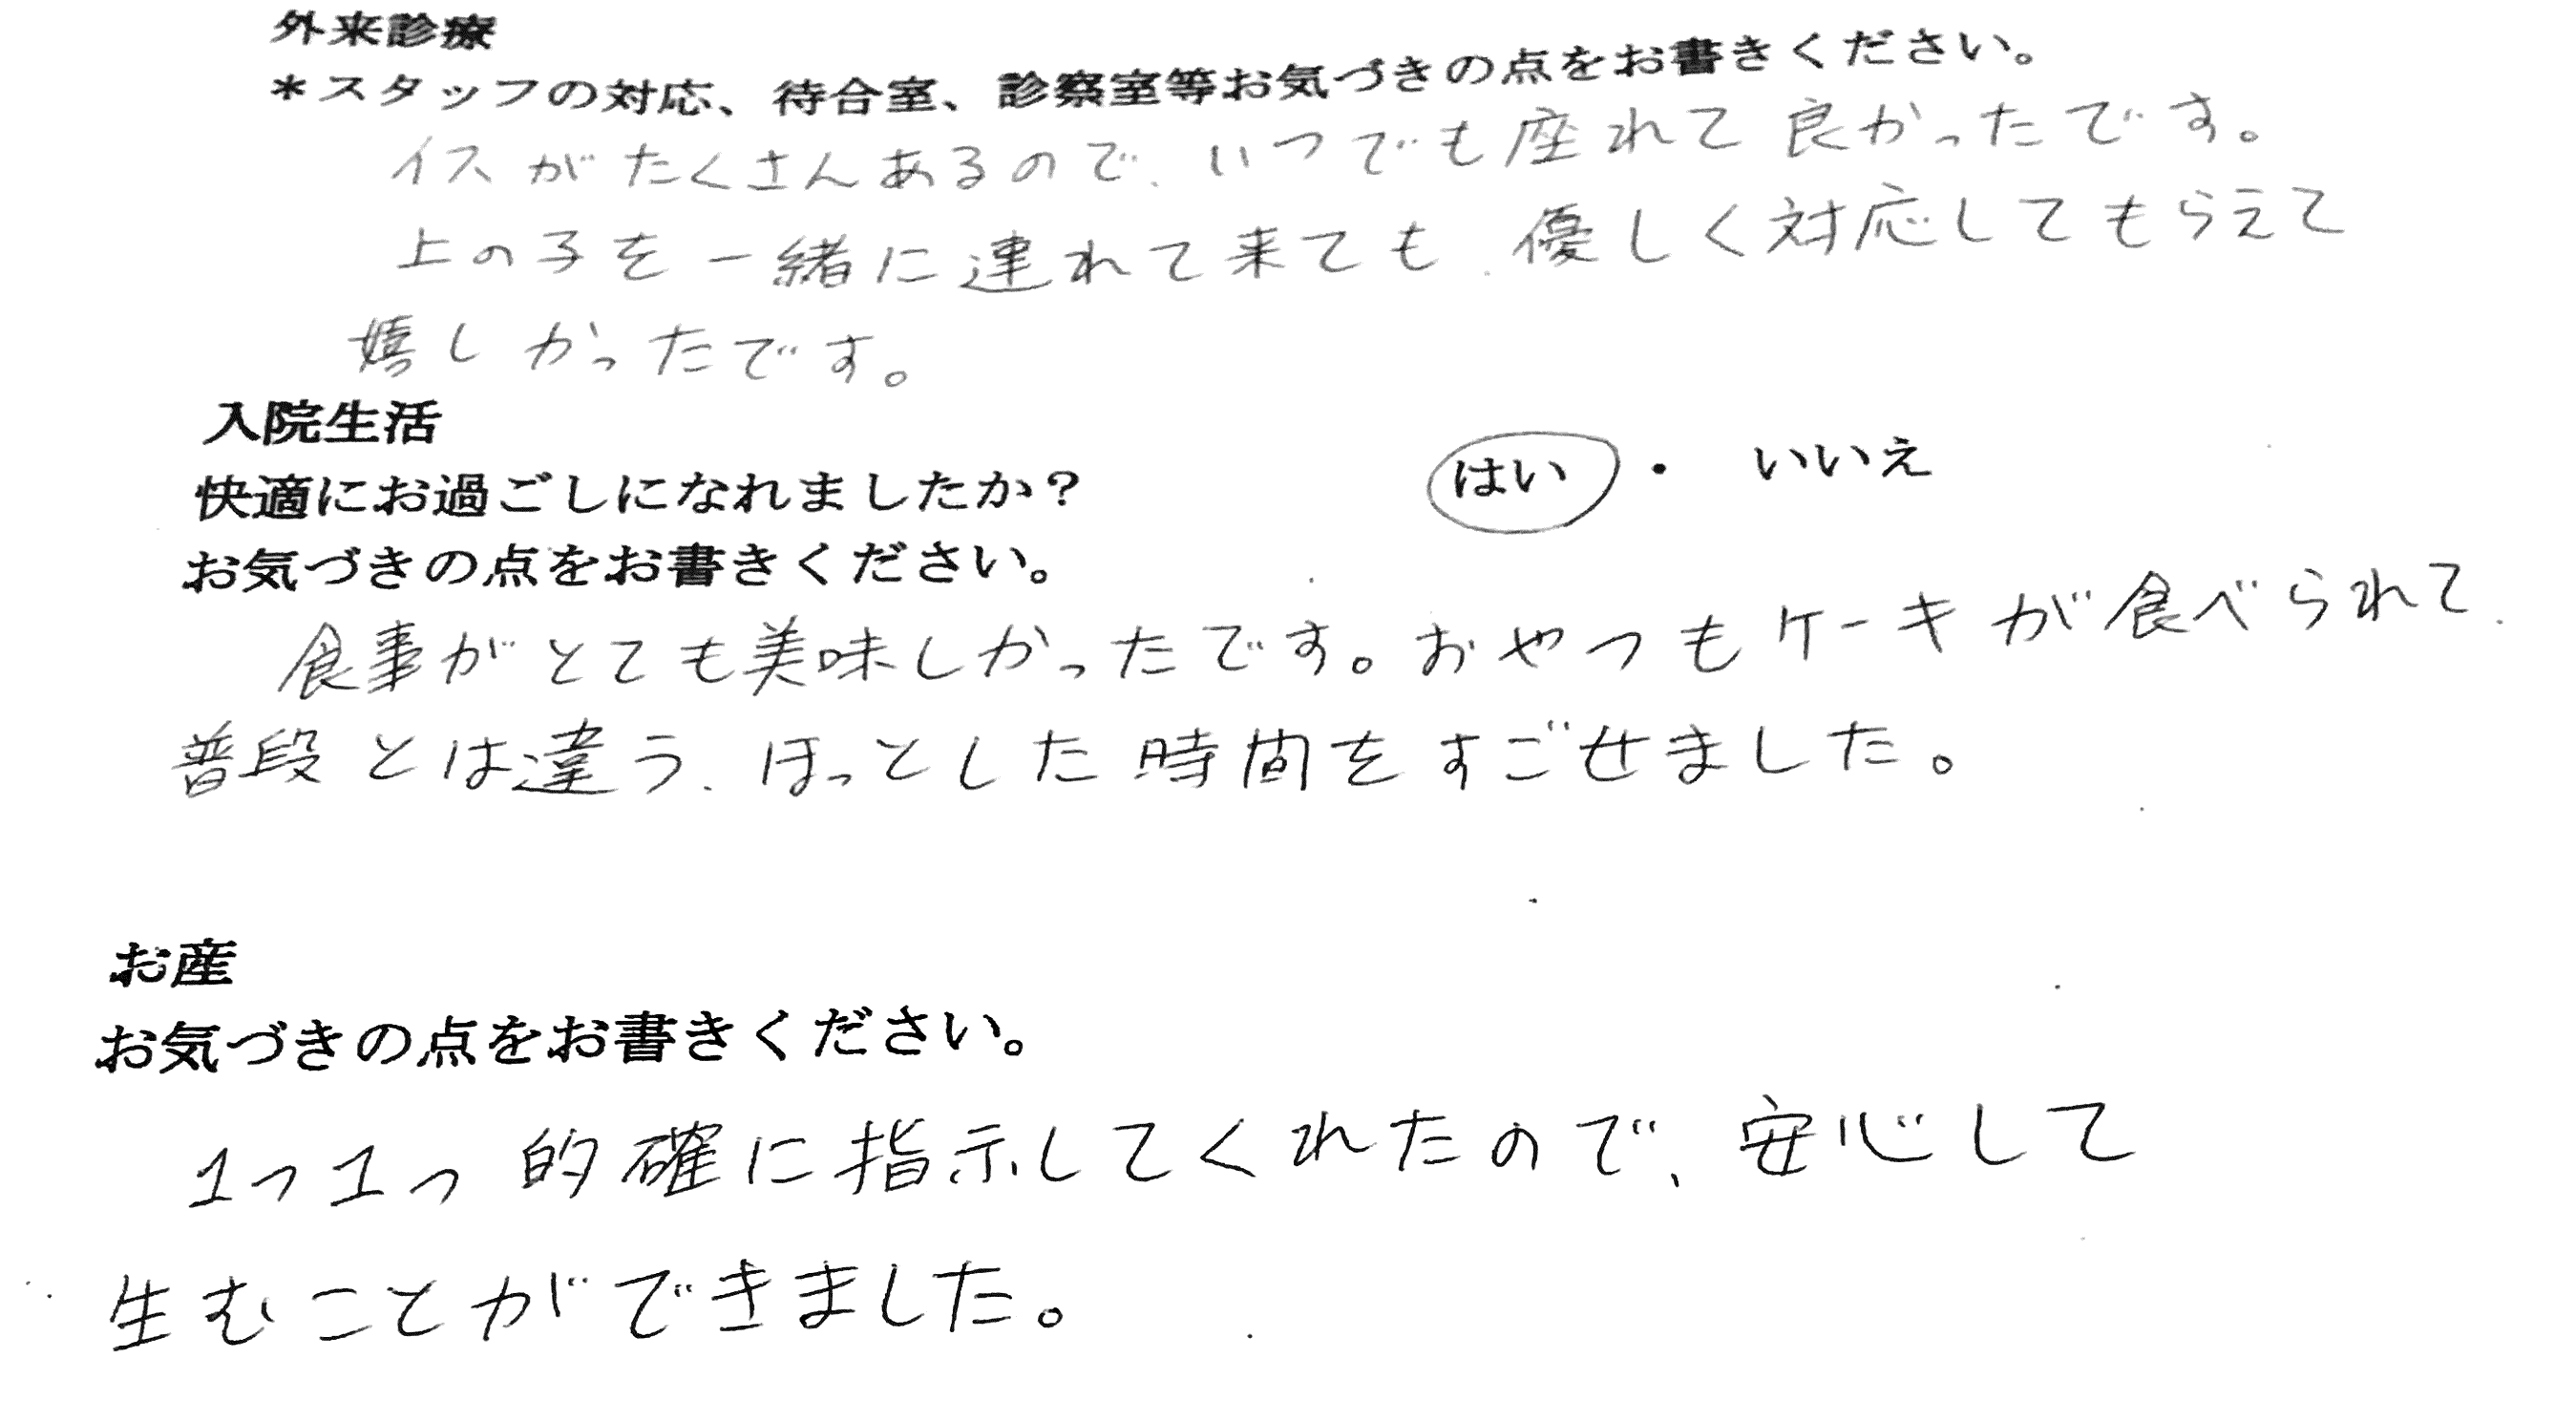 外来診療
*スタッフの対応、待合室、診察室等お気づきの点をお書きください。
イスがたくさんあるので、いつでも座れて良かったです。
上の子を一緒に連れて来ても、優しく対応してもらえて
嬉しかったです。
入院生活
快適にお過ごしになれましたか? はい ・ いいえ
お気づきの点をお書きください。
食事がとても美味しかったです。おやつもケーキが食べられて、
普段とは違う、ほっとした時間をすごせました。
お産
お気づきの点をお書きください。
1つ1つ的確に指示してくれたので、安心して
生むことができました。